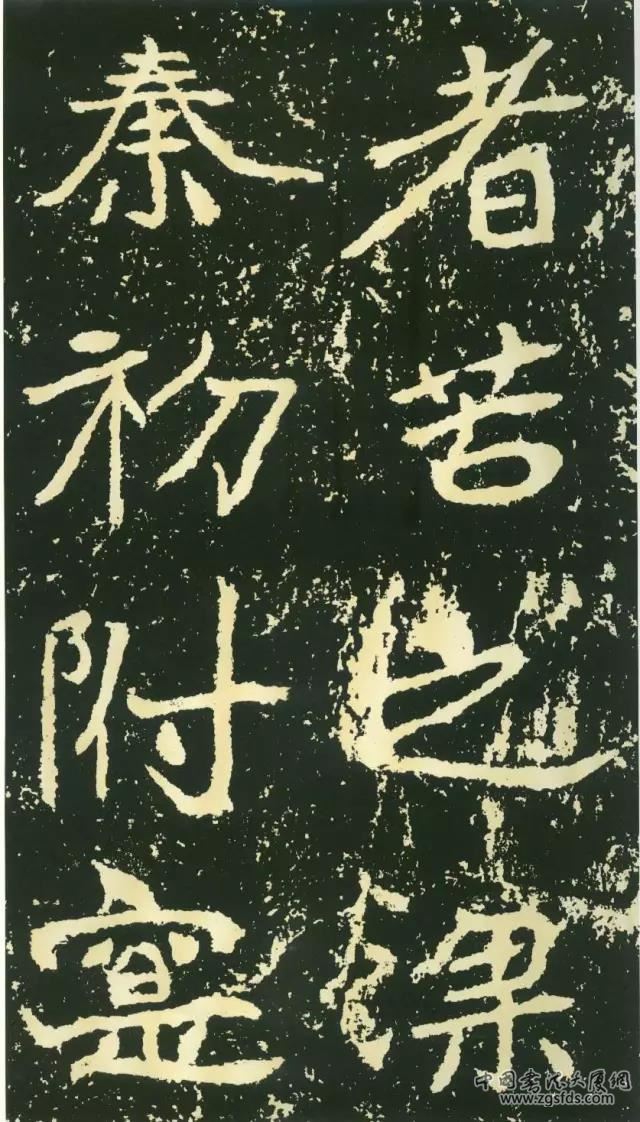 者苦之梁
秦初附寔
中国书法大厦网
www.zgsfds.com